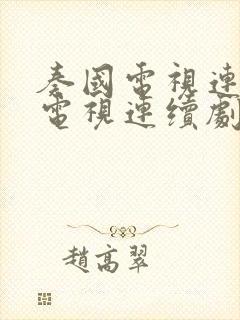 秦國電視連
電視連續劇
趙高翠